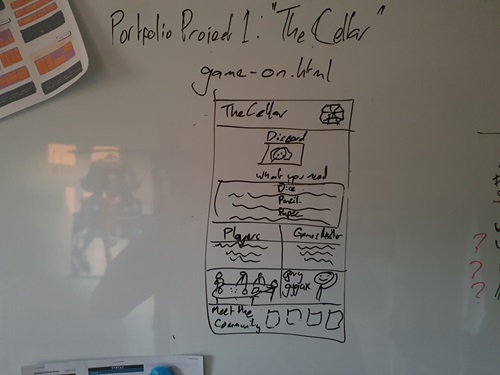 Portfolio Project 1: "The Cellar"
game-on.html
The Cellar
Discord
What you need
Dice
Pencil
Paper
Players
Games Master
gary
gygax
Meet the
Community
?
?
?